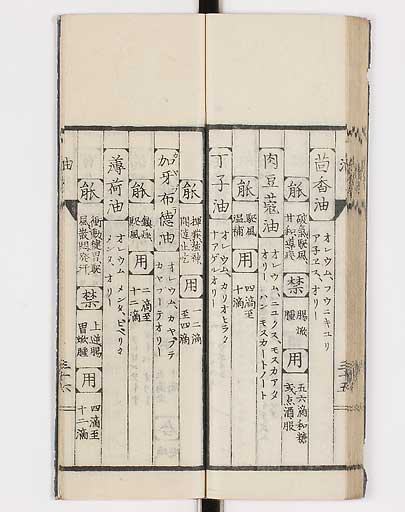 茴香油
オレウム、フウニキユリ
アネエス、オリー
能
破氣駆風
甘和導痰
禁
腸焮
腫
用
五六滴和糖
或点酒服
肉豆蔲油
オレウム、ニユクス、モスカアタ
オリー、ハン、モスカートノート
能
駆風
温補
用
四滴至
十滴
丁子油
オレウム、カリオヒラタ
ナアゲル、オリー
能
開達止乞
用
一二滴
至四滴
加牙布徳油
オレウム、カヤプテ
カヤプーテオリー
能
鎮痙
駆風
用
二滴至
十二滴
薄荷油
オレウム メンタ、ピペリタ
メンス、オリー
能
衝動健胃駆
風散悶発汗
禁
上逆腸
胃焮腫
用
四滴至
十二滴
油
三十五
三十六